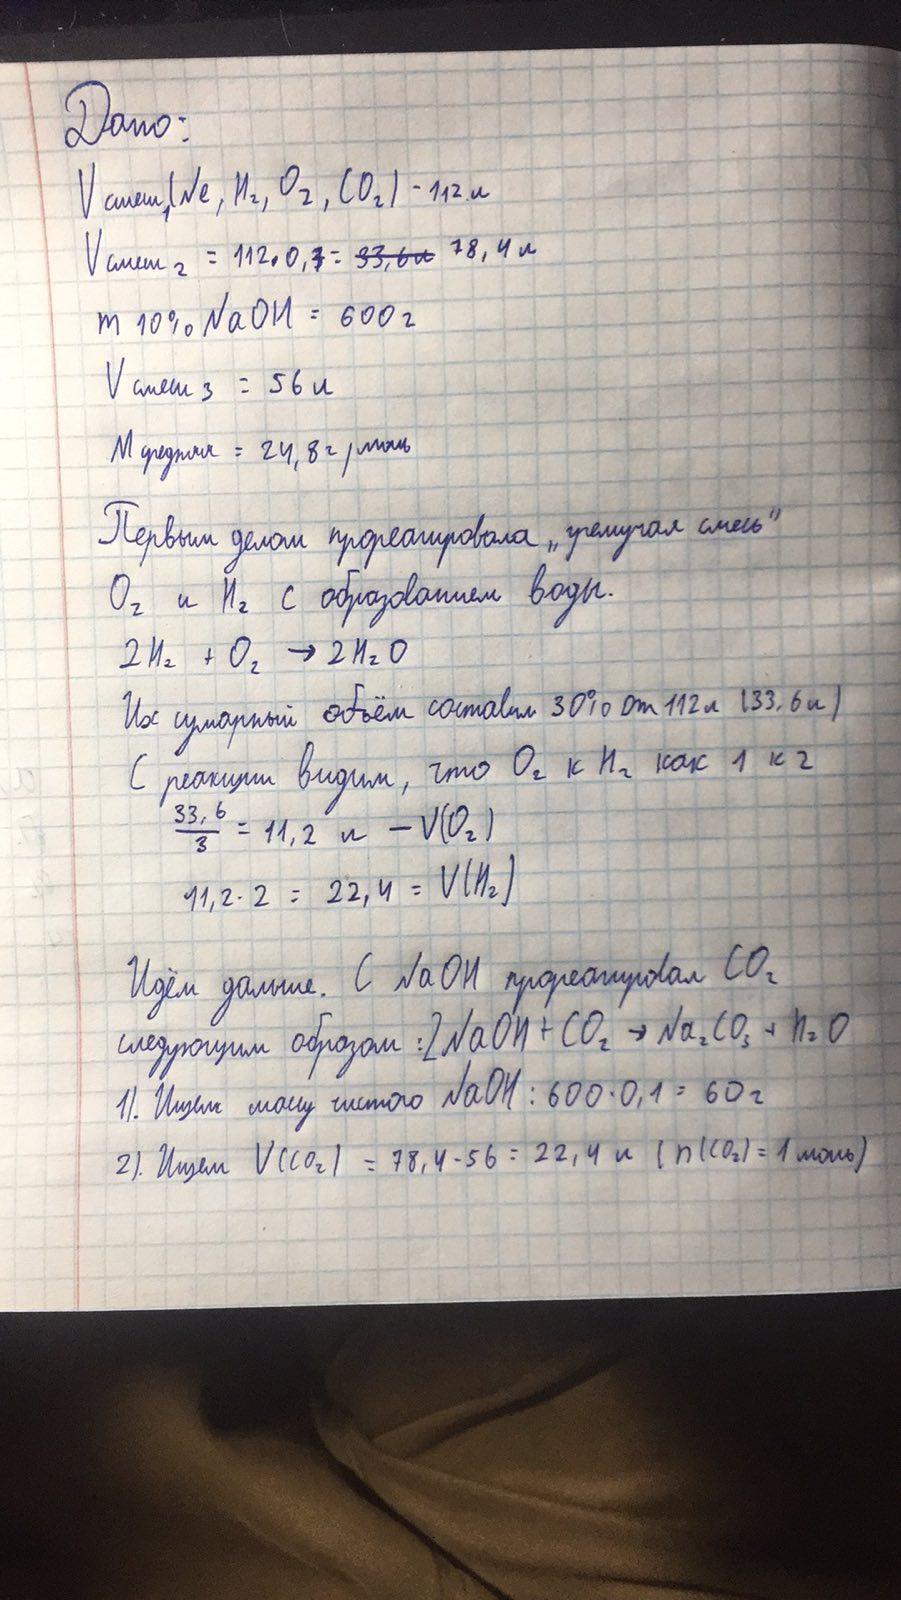 Дано:
V смеш₁(Ne, H₂, O₂, CO₂) - 112 л
V смеш₂ = 112·0,7= 33,6 л 78,4 л
m 10% NaOH = 600 г
V смеш₃ = 56 л
M средняя = 24,8 г/моль
Первым делом прореагировала „гремучая смесь"
O₂ и H₂ с образованием воды.
2H₂ + O₂ → 2H₂O
Их сумарный объём составил 30% от 112 л (33,6 л)
С реакции видим, что O₂ к H₂ как 1 к 2
33,6/3 = 11,2 л – V(O₂)
11,2·2 = 22,4 = V(H₂)
Идём дальше. С NaOH прореагировал CO₂
следующим образом: 2NaOH + CO₂ → Na₂CO₃ + H₂O
1). Ищем массу чистого NaOH: 600·0,1 = 60 г
2). Ищем V(CO₂) = 78,4-56 = 22,4 л (n(CO₂) = 1 моль)